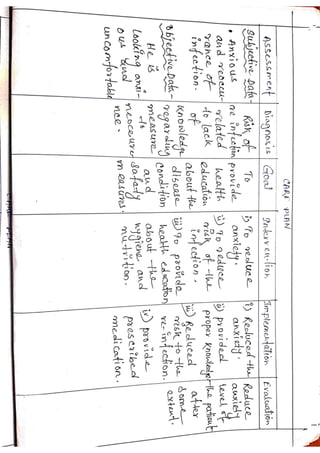 CARE PLAN
Assessment
Subjective Data-
• Anxious
and reoccu-
rance of
infection.
Objective Data-
He is
looking anxi-
ous and
uncomfortable
Diagnosis
Risk of
re infection
related
to lack
of
knowledge
regarding
measure
to
reoccure
nce.
Goal
To
provide
health
education
about the
disease
condition
and
safety
measure.
Intervention
i) To reduce
anxiety.
ii) To reduce
risk of the
infection.
iii) To provide
health education
about the
hygiene and
nutrition.
Implementation
i) Reduced the
anxiety.
ii) provided
proper knowledge
iii) Reduced
risk to the
re-infection.
iv) provide
prescribed
medication.
Evaluation
Reduce
anxiety
level of
the patient
after
some
extent.